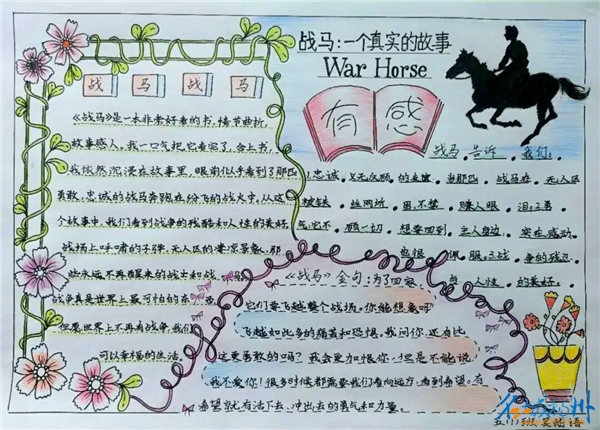 战马:一个真实的故事
War Horse
战 马 战 马
有感
《战马》是一本非常好看的书,情节曲折,
故事感人,我一口气把它看完了,合上书,
我依然沉浸在故事里,眼前似乎看到了那匹
勇敢,忠诚的战马奔跑在纷飞的战火中,从这
个故事中,我们看到战争的残酷和人性的美好
战场上呼啸的子弹,无人区的凄凉景象,那
些永远不再醒来的战士和战
战争真是世界上最可怕的
但愿世界上不再有战争,我们
可以幸福的生活
战马告诉我们:
忠诚
战马在无人区
被铁丝网所
赚人眼泪
顾一切想要回到主人身边
实在感动
也很佩服
战争的残忍
与人性的美好。
《战马》金句:为了回家,
它们要飞越整个战场。你能想象吗?
飞越如此多的痛苦和恐惧。我问你,还有比
这更勇敢的吗?我会更加恨你,但是不能说
我不爱你!很多时候都需要我们看向远方,看到希望。有
希望就有活下去,冲出去的勇气和力量。